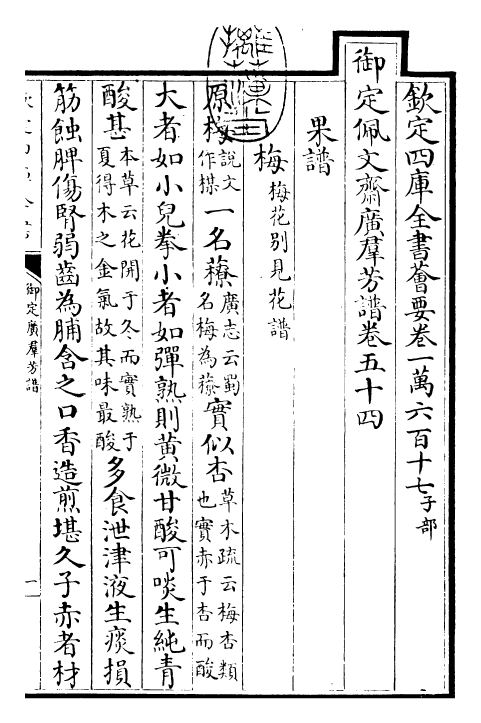 欽定四庫全書薈要卷一萬六百十七子部
御定佩文齋廣羣芳譜卷五十四
果譜
梅梅花別見花譜
原梅說文作楳一名䕩廣志云蜀名梅為䕩實似杏草木疏云梅杏類也實赤于杏而酸
大者如小兒拳小者如彈熟則黄微甘酸可啖生純青
酸甚本草云花開于冬而實熟于夏得木之全氣故其味最酸多食泄津液生痰損
筋蝕脾傷腎弱齒為脯含之口香造煎堪久子赤者材
御定廣羣芳譜
一